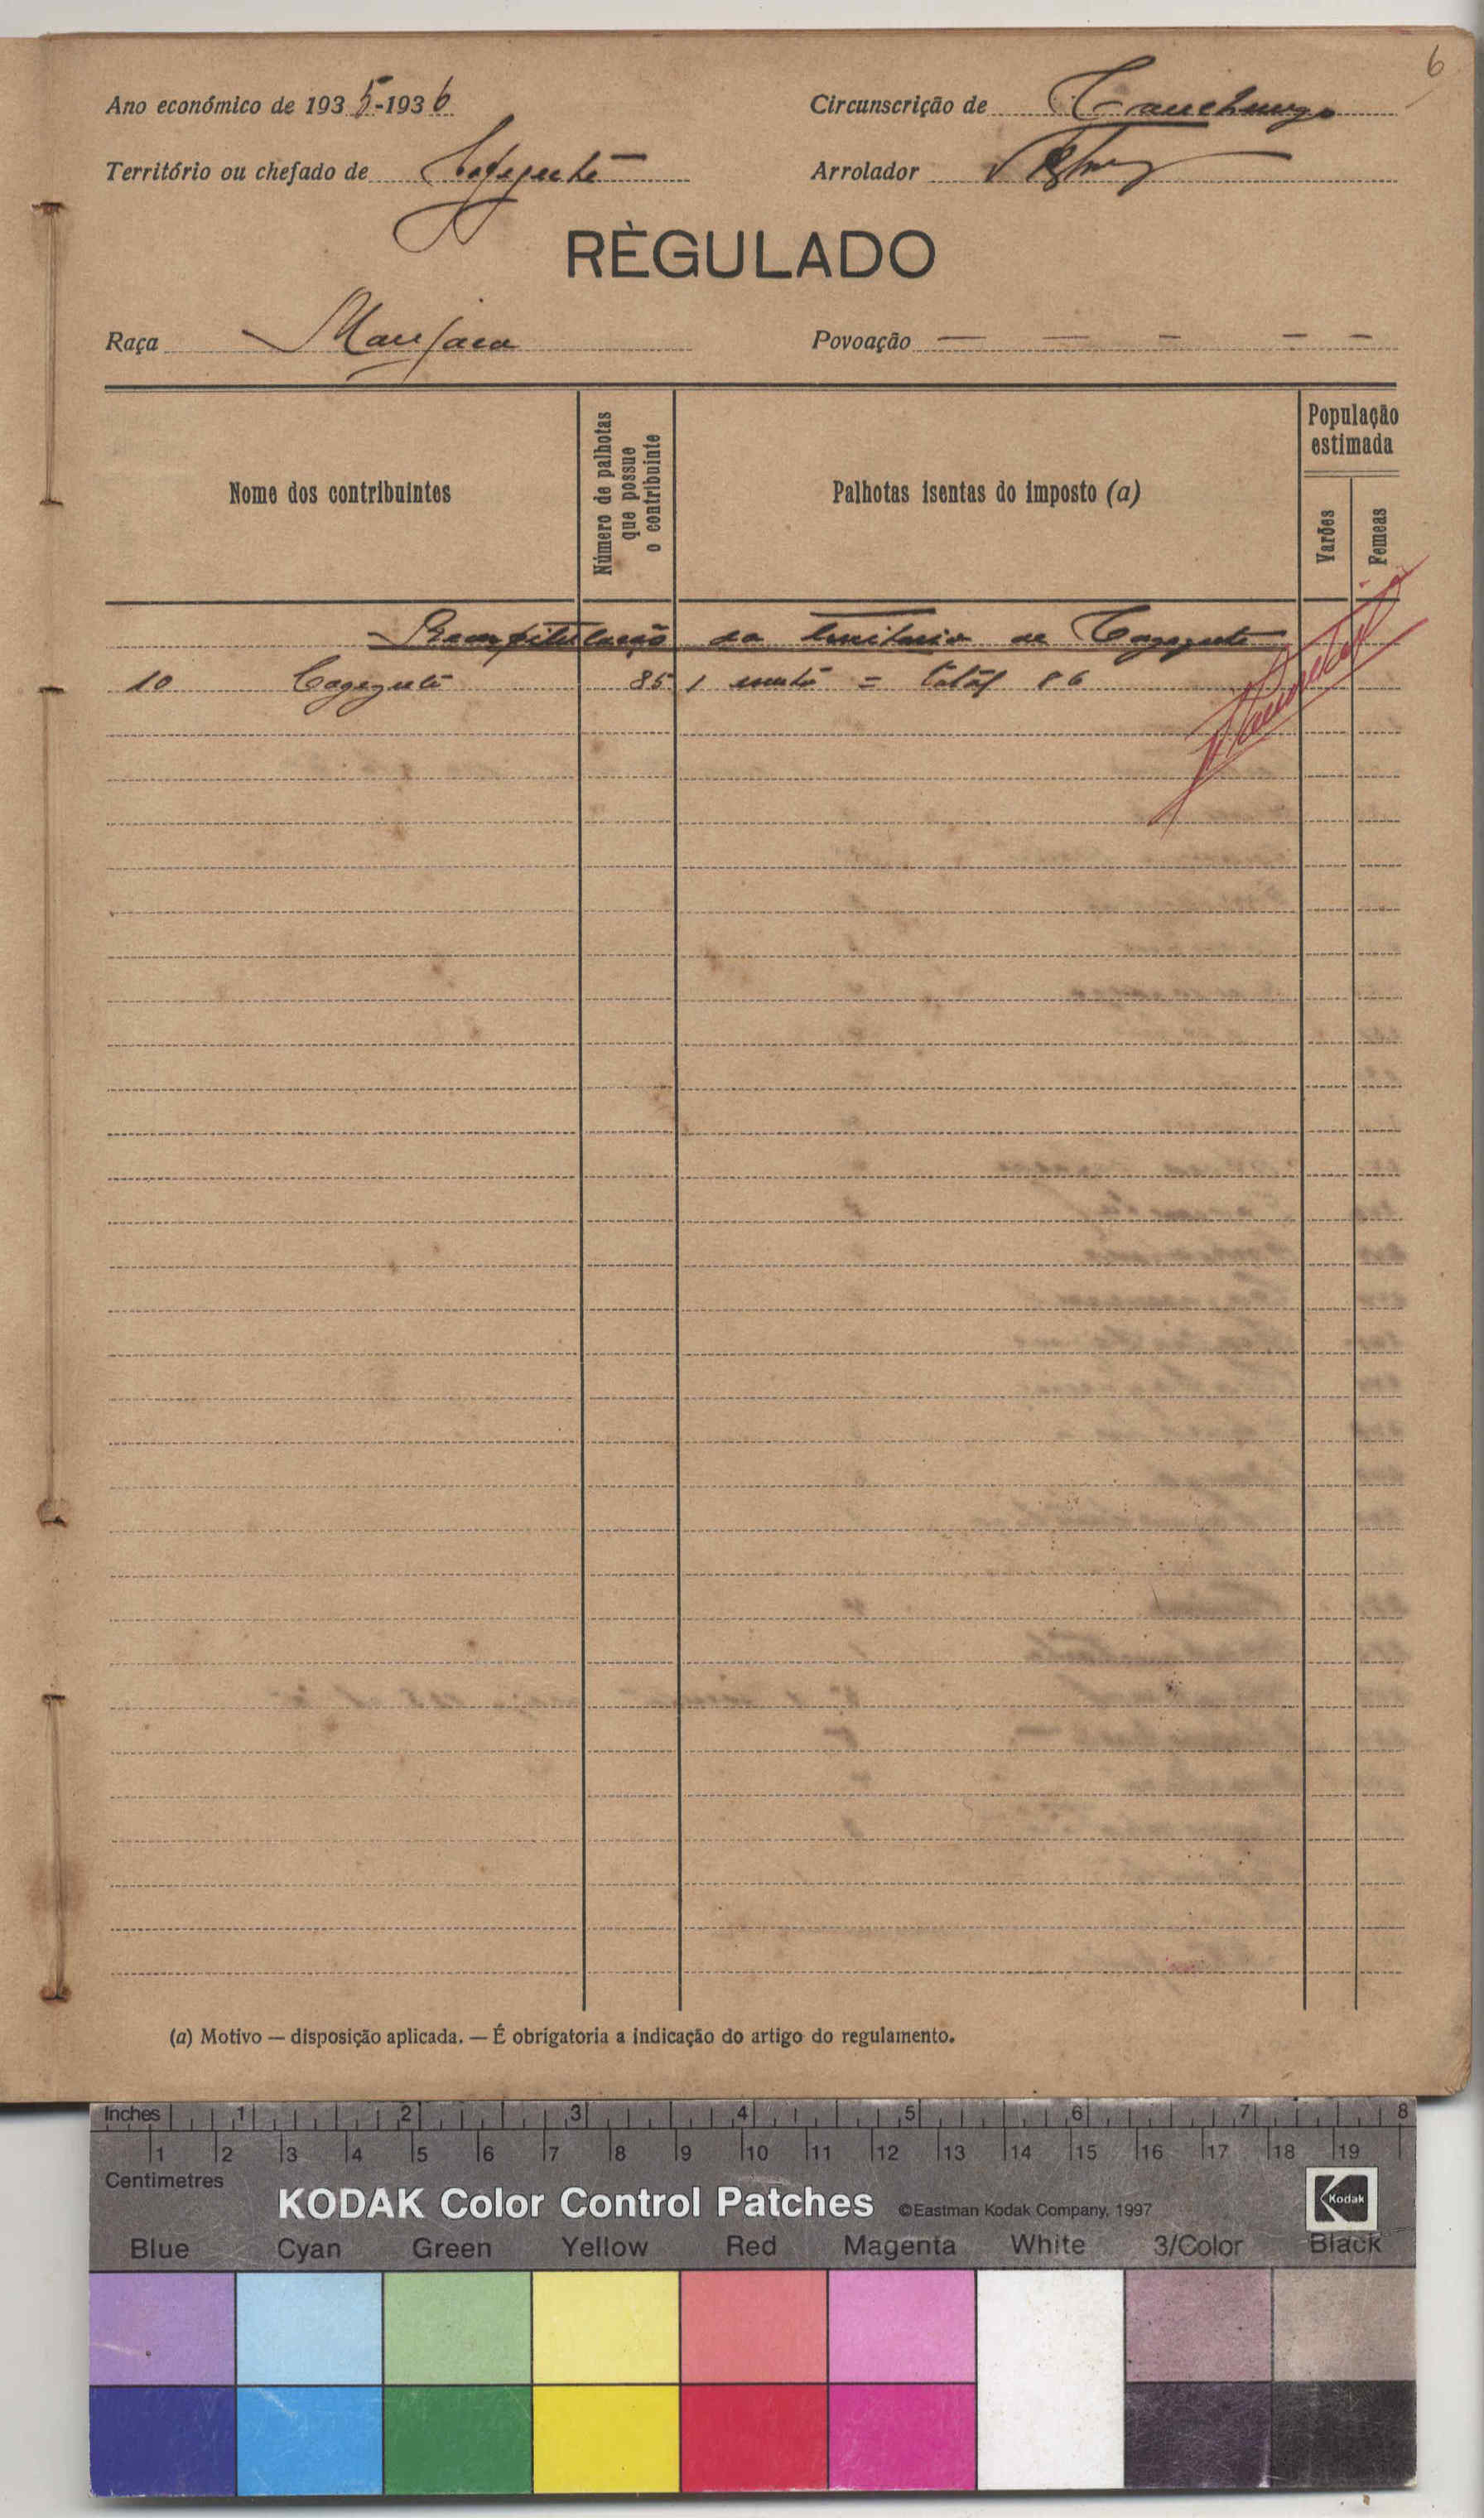 6
Ano económico de 1935-1936
Circunscrição de Canchungo
Território ou chefado de Cagegute
Arrolador
RÈGULADO
Raça Manjaca
Povoação — — — — —
Nome dos contribuintes
Número de palhotas que possue o contribuinte
Palhotas isentas do imposto (a)
População estimada
Varões
Femeas
Recapitulação do território de Cagegute
10 Cagegute 85 1 = total 86
(a) Motivo — disposição aplicada. — É obrigatoria a indicação do artigo do regulamento.
Inches 1 2 3 4 5 6 7 8
1 2 3 4 5 6 7 8 9 10 11 12 13 14 15 16 17 18 19
Centimetres
KODAK Color Control Patches ©Eastman Kodak Company, 1997 Kodak
Blue Cyan Green Yellow Red Magenta White 3/Color Black